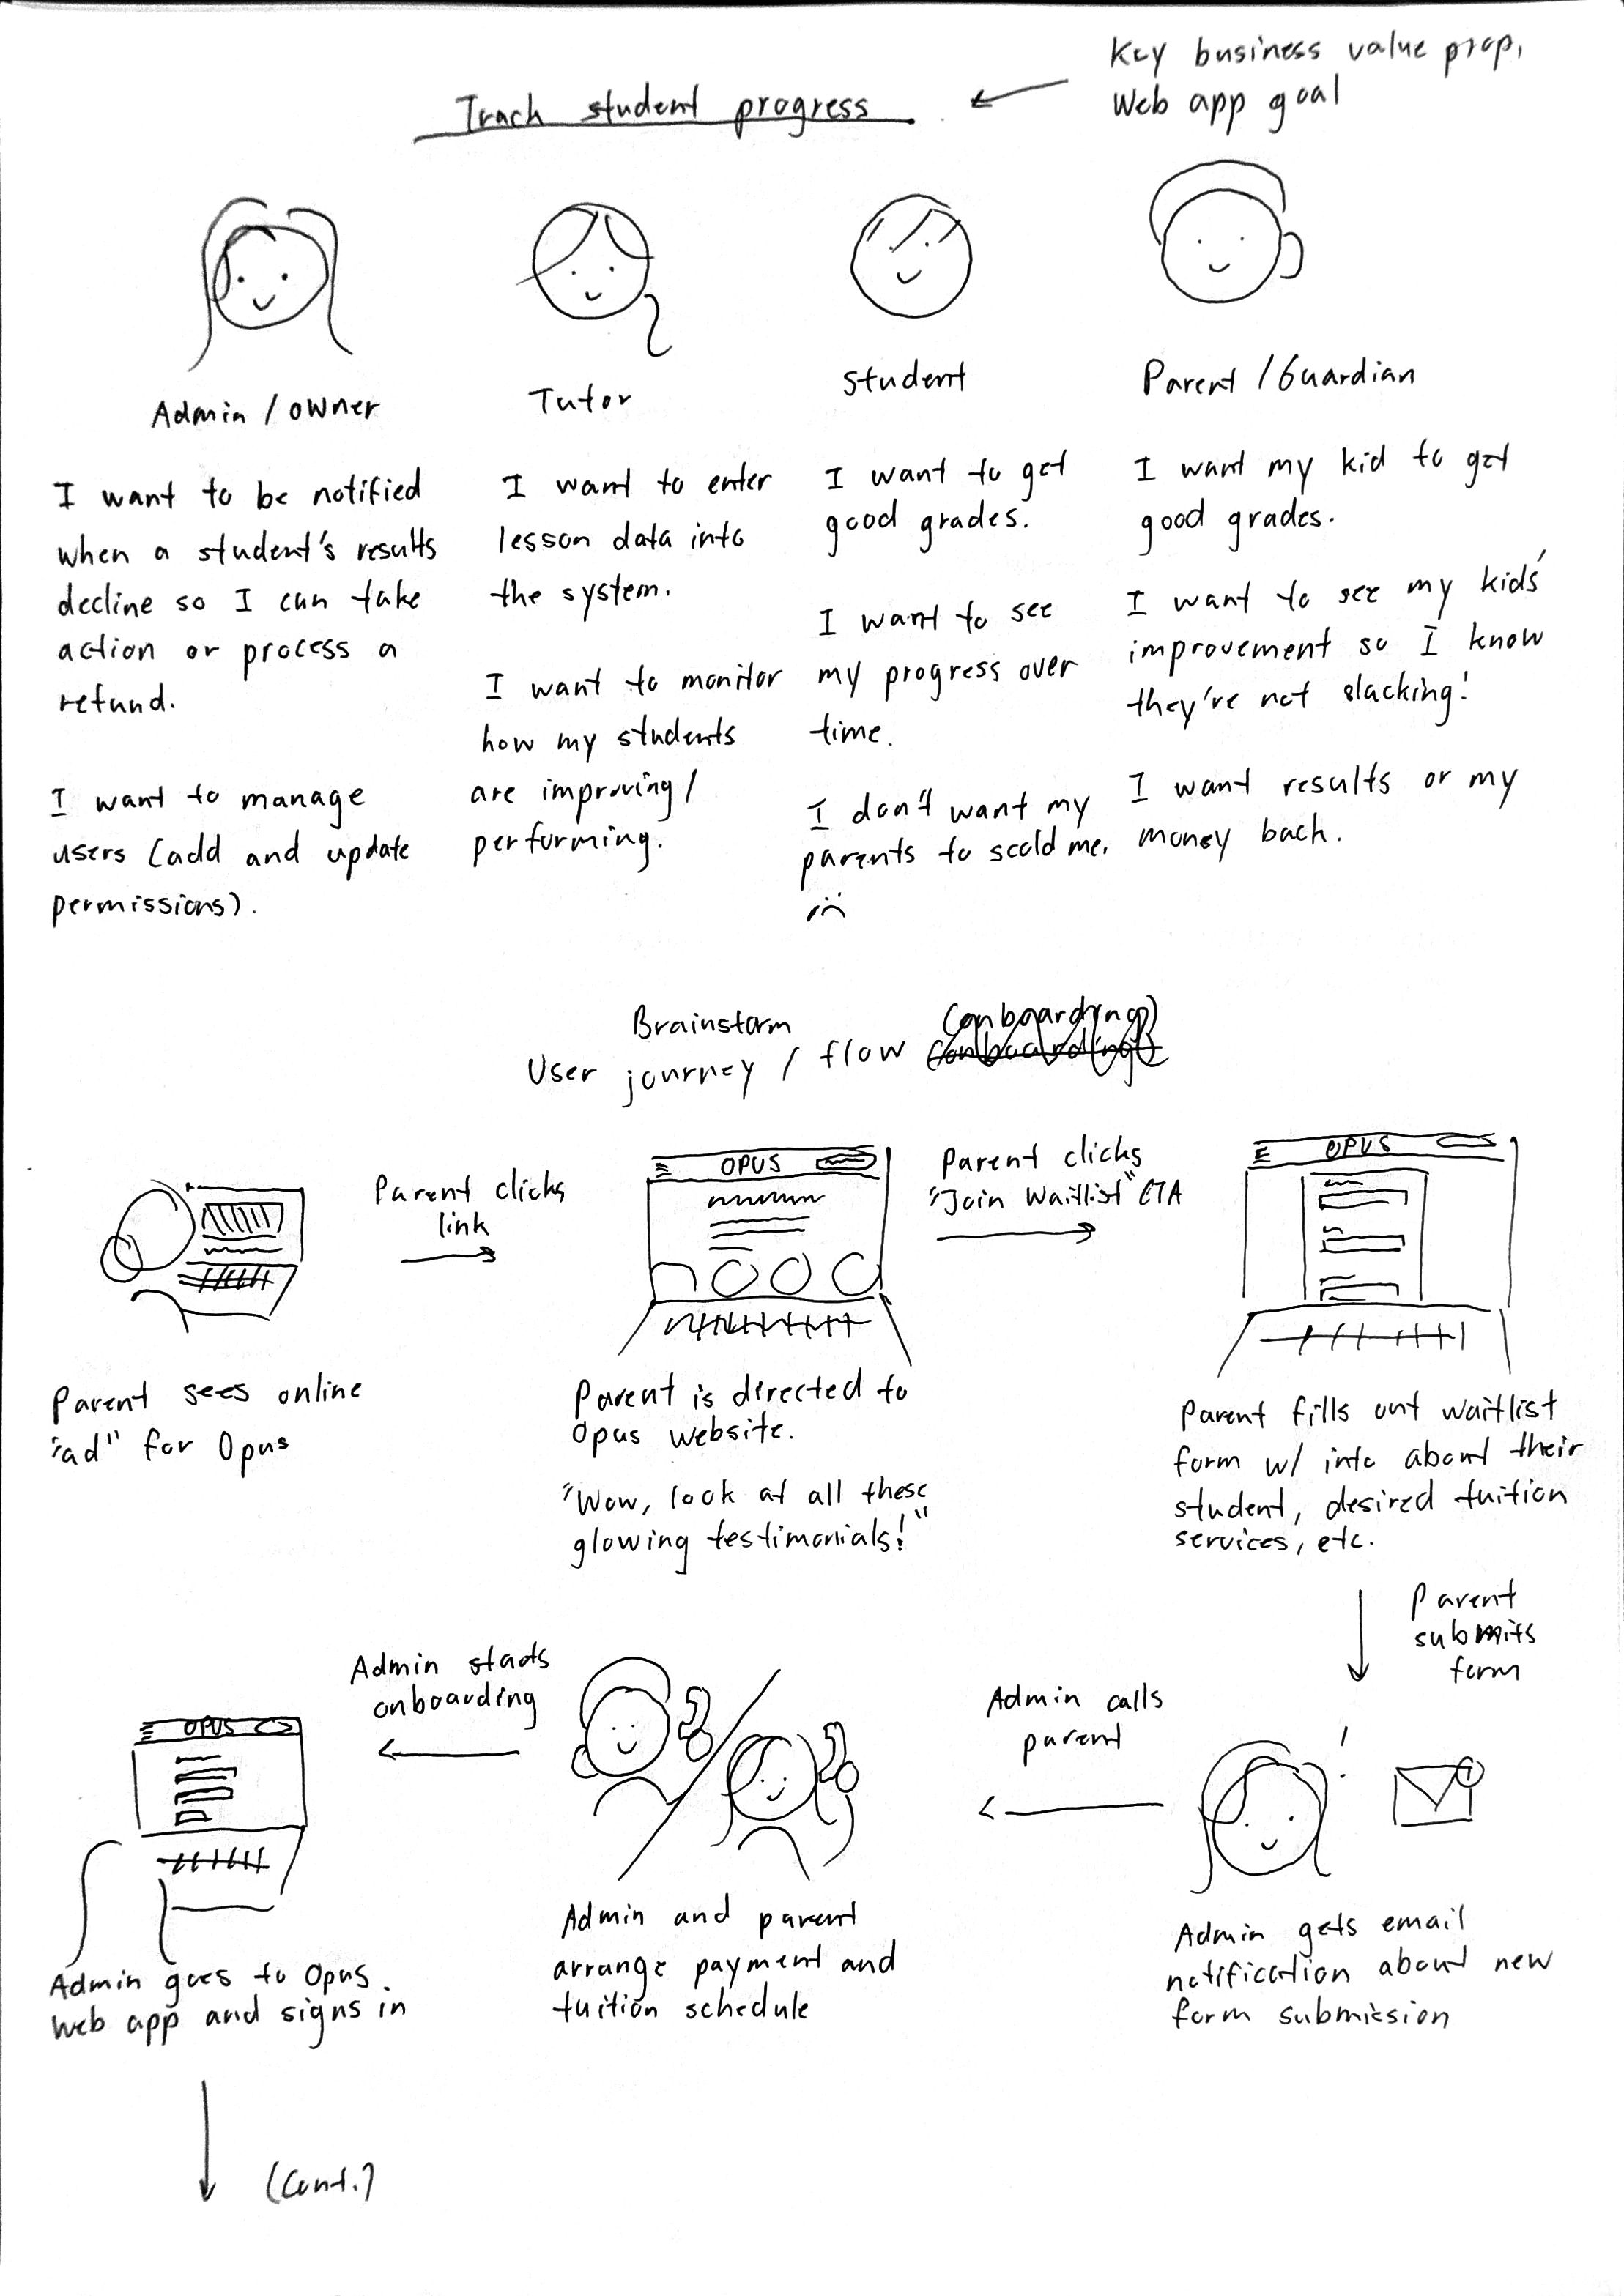 Key business value prop,
Web app goal
Track student progress
Admin / owner
I want to be notified
when a student's results
decline so I can take
action or process a
refund.
I want to manage
users (add and update
permissions).
Tutor
I want to enter
lesson data into
the system.
I want to monitor
how my students
are improving /
performing.
Student
I want to get
good grades.
I want to see
my progress over
time.
I don't want my
parents to scold me.
Parent / Guardian
I want my kid to get
good grades.
I want to see my kids'
improvement so I know
they're not slacking!
I want results or my
money back.
Brainstorm
User journey / flow
(onboarding)
Parent sees online
"ad" for Opus
Parent clicks
link
OPUS
Parent is directed to
Opus website.
"Wow, look at all these
glowing testimonials!"
Parent clicks
"Join Waitlist" CTA
OPUS
Parent fills out waitlist
form w/ info about their
student, desired tuition
services, etc.
Parent
submits
form
1
Admin gets email
notification about new
form submission
Admin calls
parent
Admin and parent
arrange payment and
tuition schedule
Admin starts
onboarding
OPUS
Admin goes to Opus
web app and signs in
(Cont.)